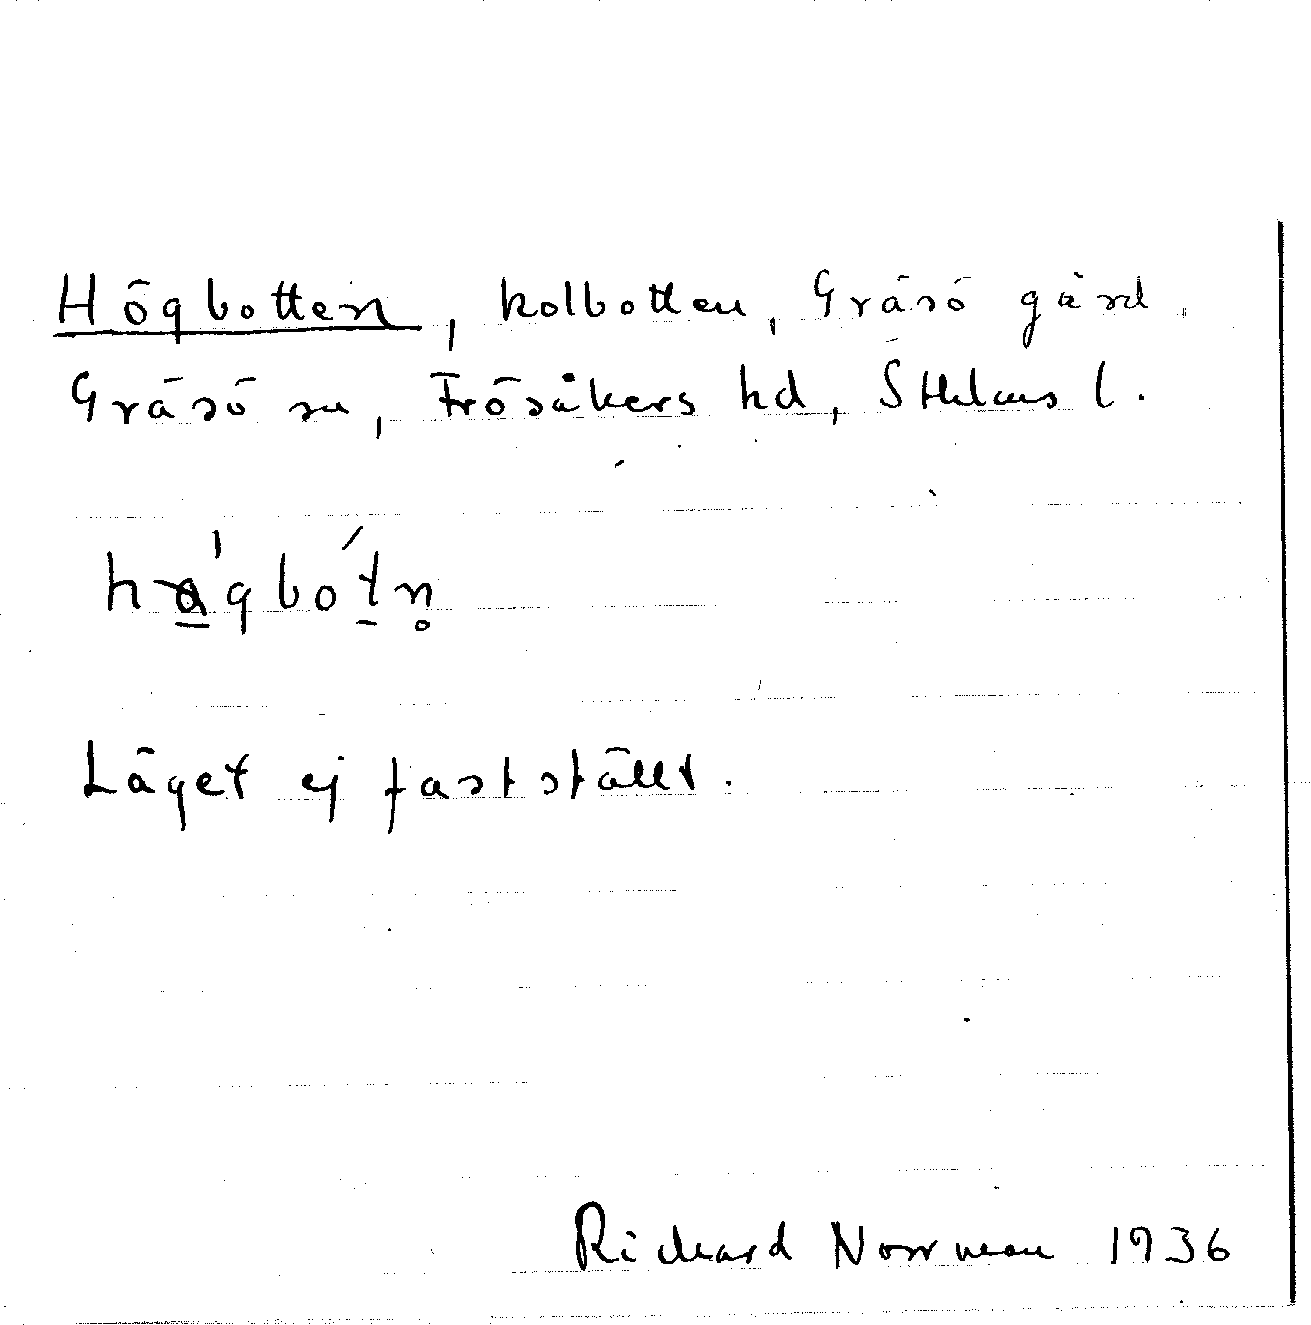 Högbotten, kolbotten, Gräsö gård.
Gräsö sn, Frösåkers hd, Sthlms l.
Läget ej fastställt.
Richard Norrman 1936